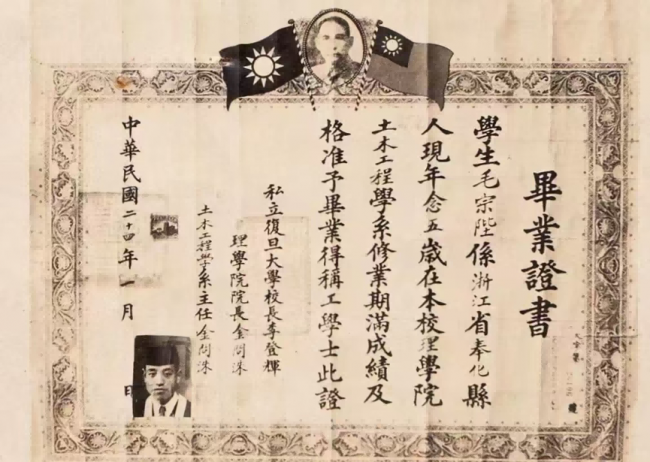 畢業證書
學生毛宗陛係浙江省奉化縣
人現年念五歲在本校理學院
土木工程學系修業期滿成績及
格准予畢業得稱工學士此證
私立復旦大學校長李登輝
理學院院長金問洙
土木工程學系主任金問洙
中華民國二十四年一月 日
字第 號